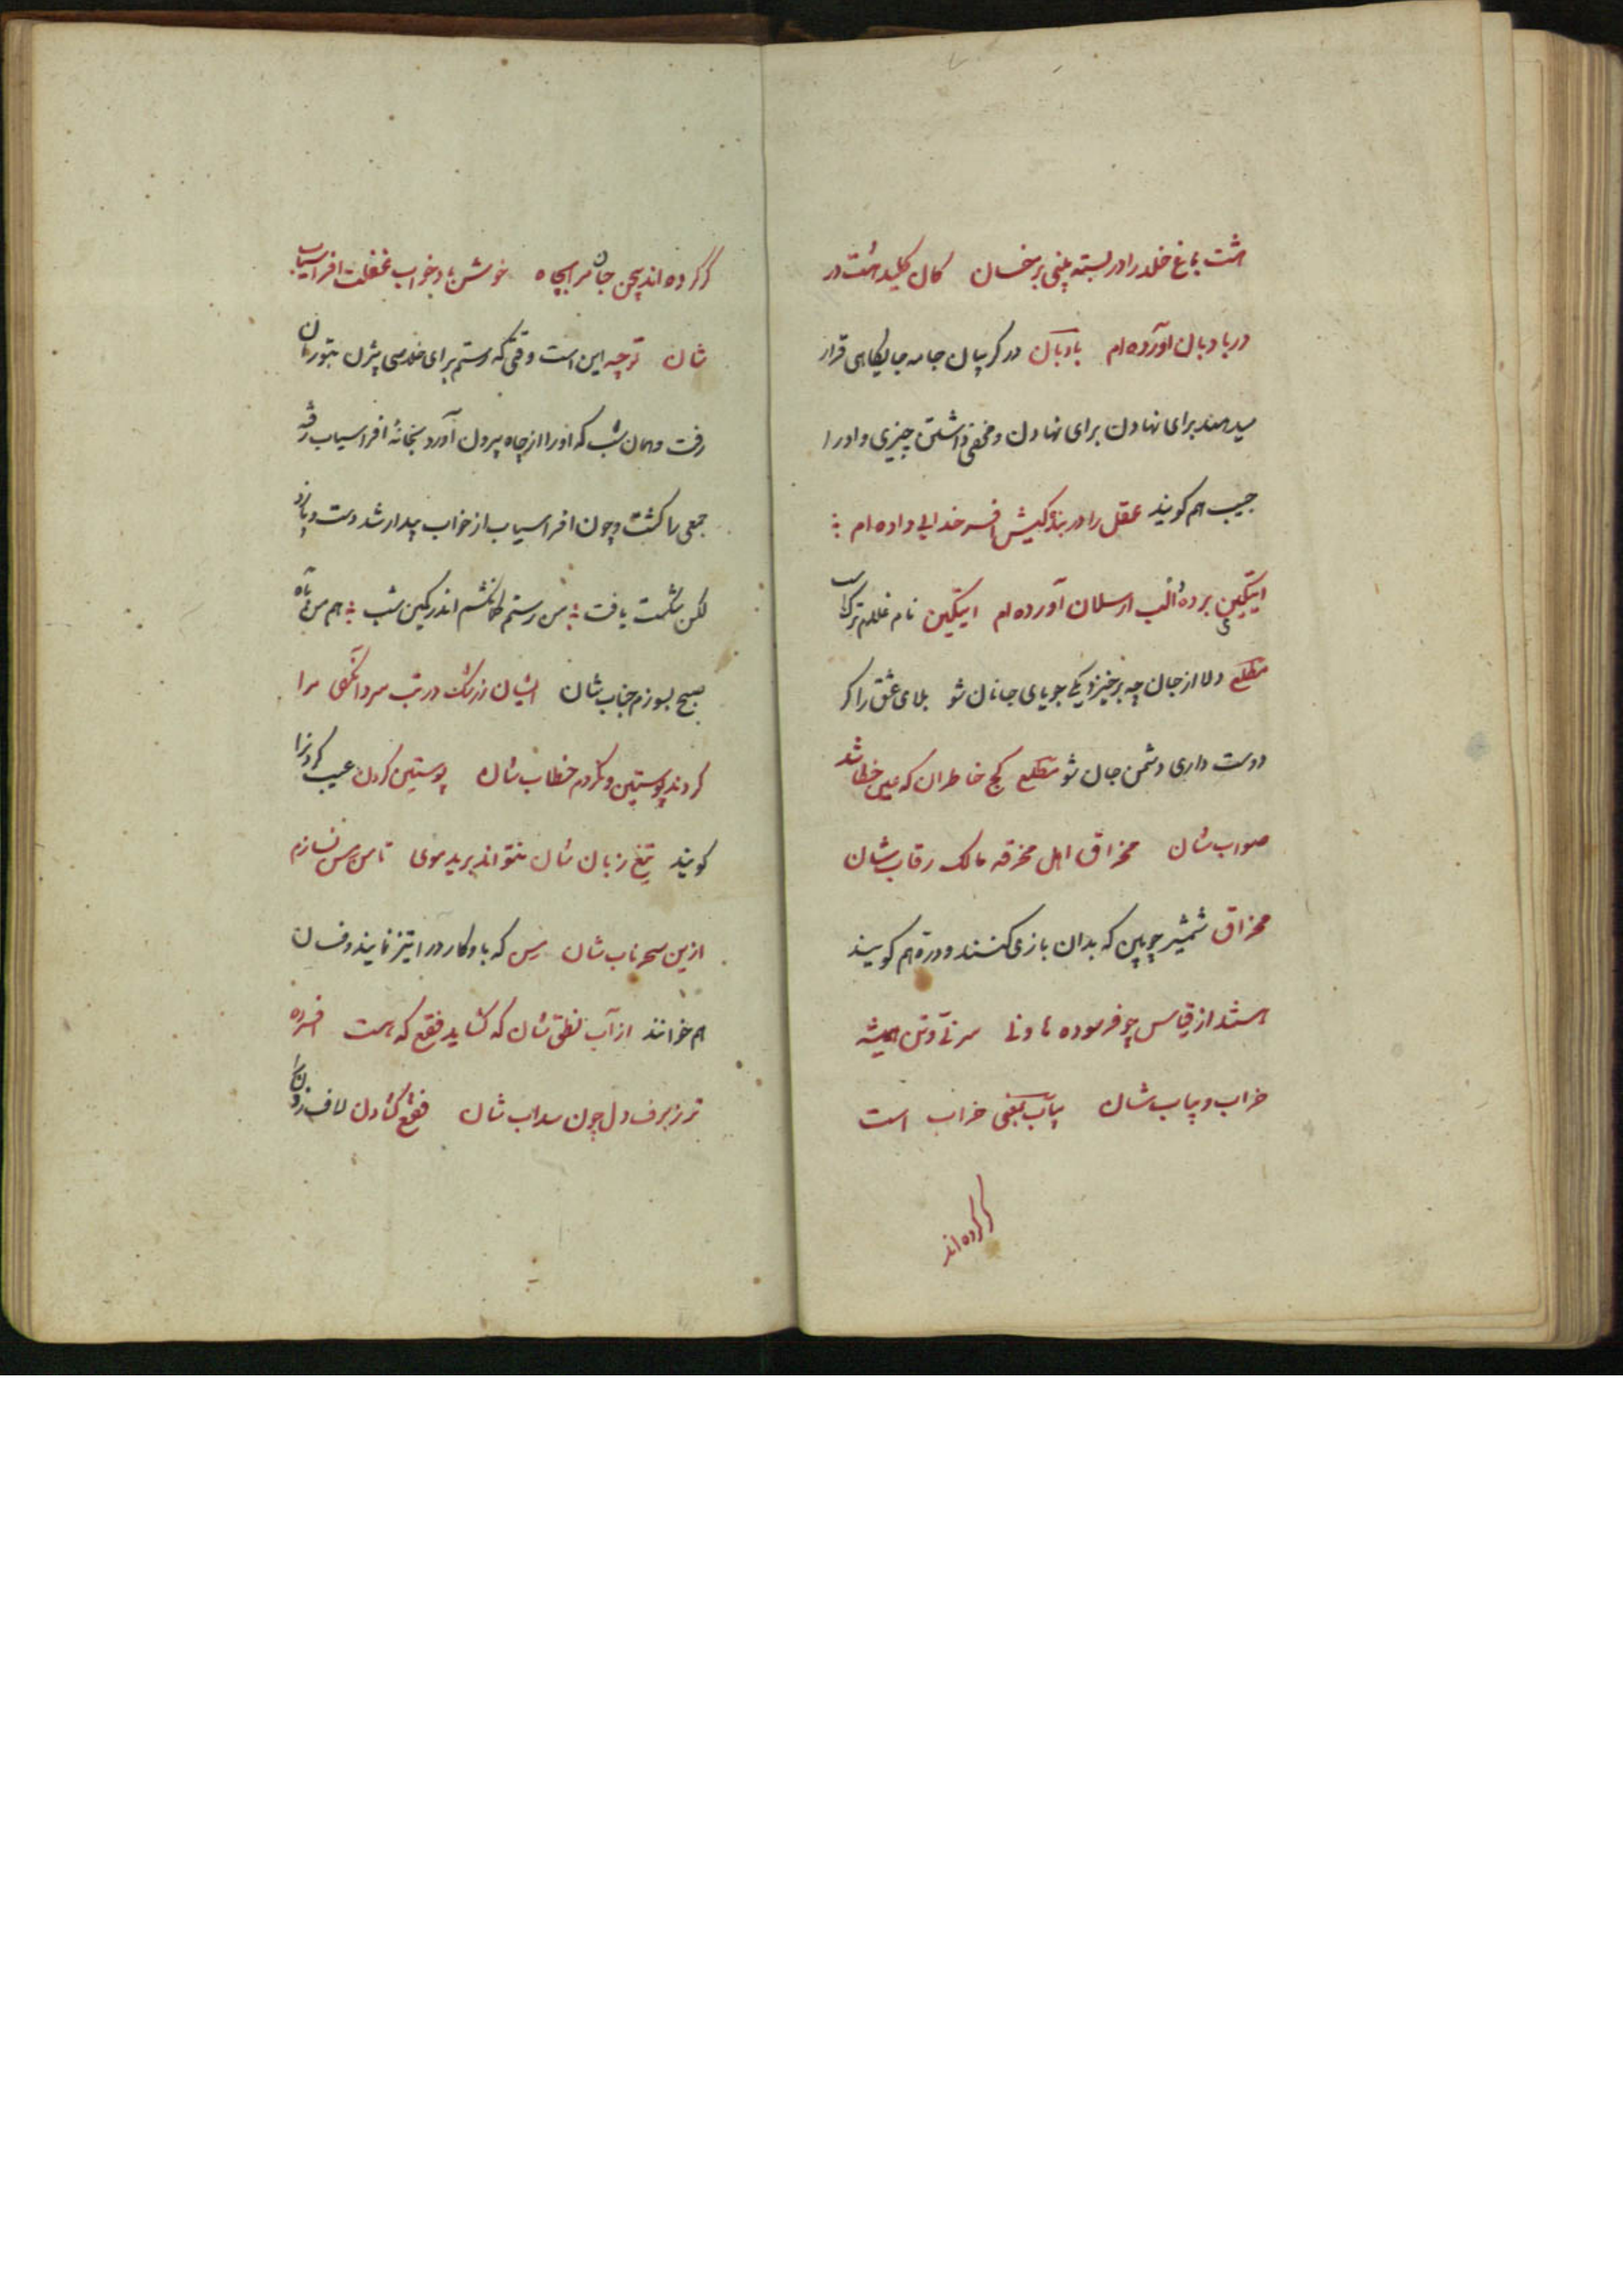 هشت باغ خلد را در بسته بینی بر خسان کان کلید هشت در
در بادبان آورده‌ام بادبان در گریبان جامه جایگاهی قرار
میدهند برای نهادن برای نهادن و مخفی داشتن چیزی و او را
جیب هم کویند عقل را در بندگیش افسر خدایی داده ام
ایتکین برده الب ارسلان آورده ام ایتکین نام غلام ترک است
مطلع دلا از جان چه برخیزد یکی جویای جانان شو بلای عشق را کر
دوست داری دشمن جان شو مطلع کج خاطران که عین خطا شد
صواب شان مخراق اهل مخرقه مالک رقاب شان
مخراق شمشیر چوبین که بدان بازی کنند و دره هم کویند
هستند از قیاس چو فرسوده هاونی سر نی و تن همیشه
خراب و بیاب شان بیاب بمعنی خراب است
کر کرده اند
کر کرده اند بیژن جاه مرا بچاه خوش باد خواب غفلت افراسیاب
شان ترجمه این است وقتی که رستم برای خلاصی بیژن بتوران
رفت و همان شب که او را از چاه بیرون آورد بخانهٔ افراسیاب رفته
جمعی را کشت و چون افراسیاب از خواب بیدار شد دست و پا زد
لکن شکست یافت من رستم کمانکشم اندر کمین شب هم من به آه
صبح بسوزم جناب شان ایشان ز رشک در تب سرد آنگهی مرا
کردند پوستین و نکردم خطاب شان پوستین کردن عیب کردنرا
کویند تیغ زبان شان نتواند برید موی تا من رس نسازم
ازین سحر ناب شان رس که با و کارد را تیز نمایند و فسان
هم خوانند از آب نطق شان که کشاید فقع که هست افسرده
تر ز برف دل چون سداب شان فقع کشادن لاف زدن